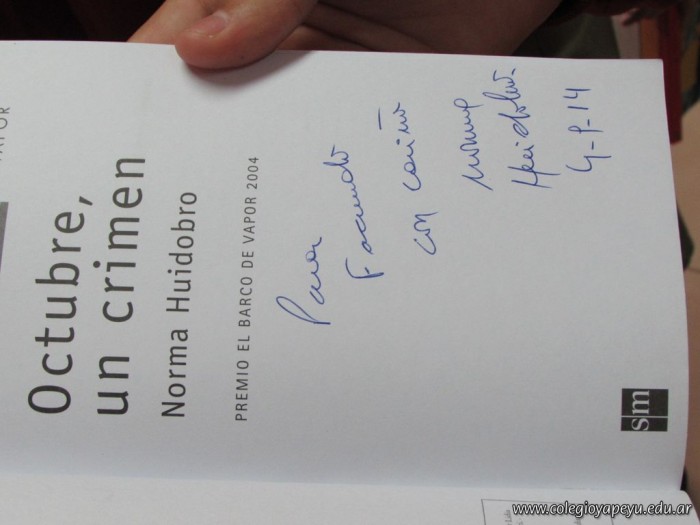 Octubre,
un crimen
Norma Huidobro
PREMIO EL BARCO DE VAPOR 2004
Para
Facundo
con cariño
Norma
Huidobro
sm
www.colegioyapeyu.edu.ar